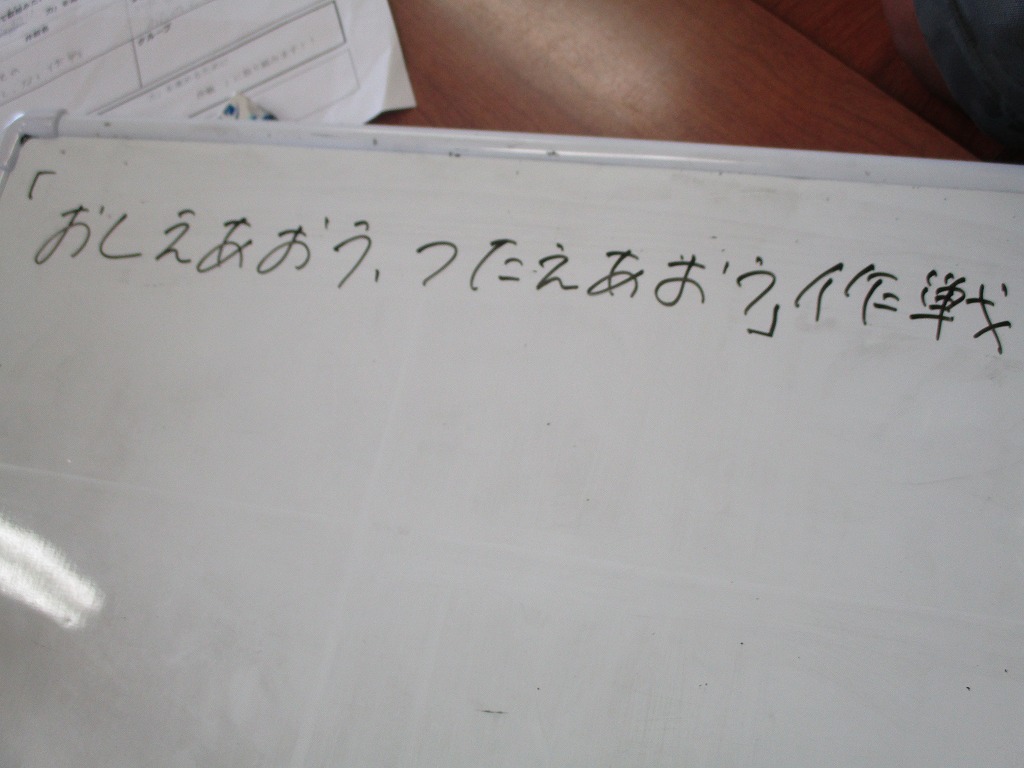 グループ
「おしえあおう、つたえあおう」作戦